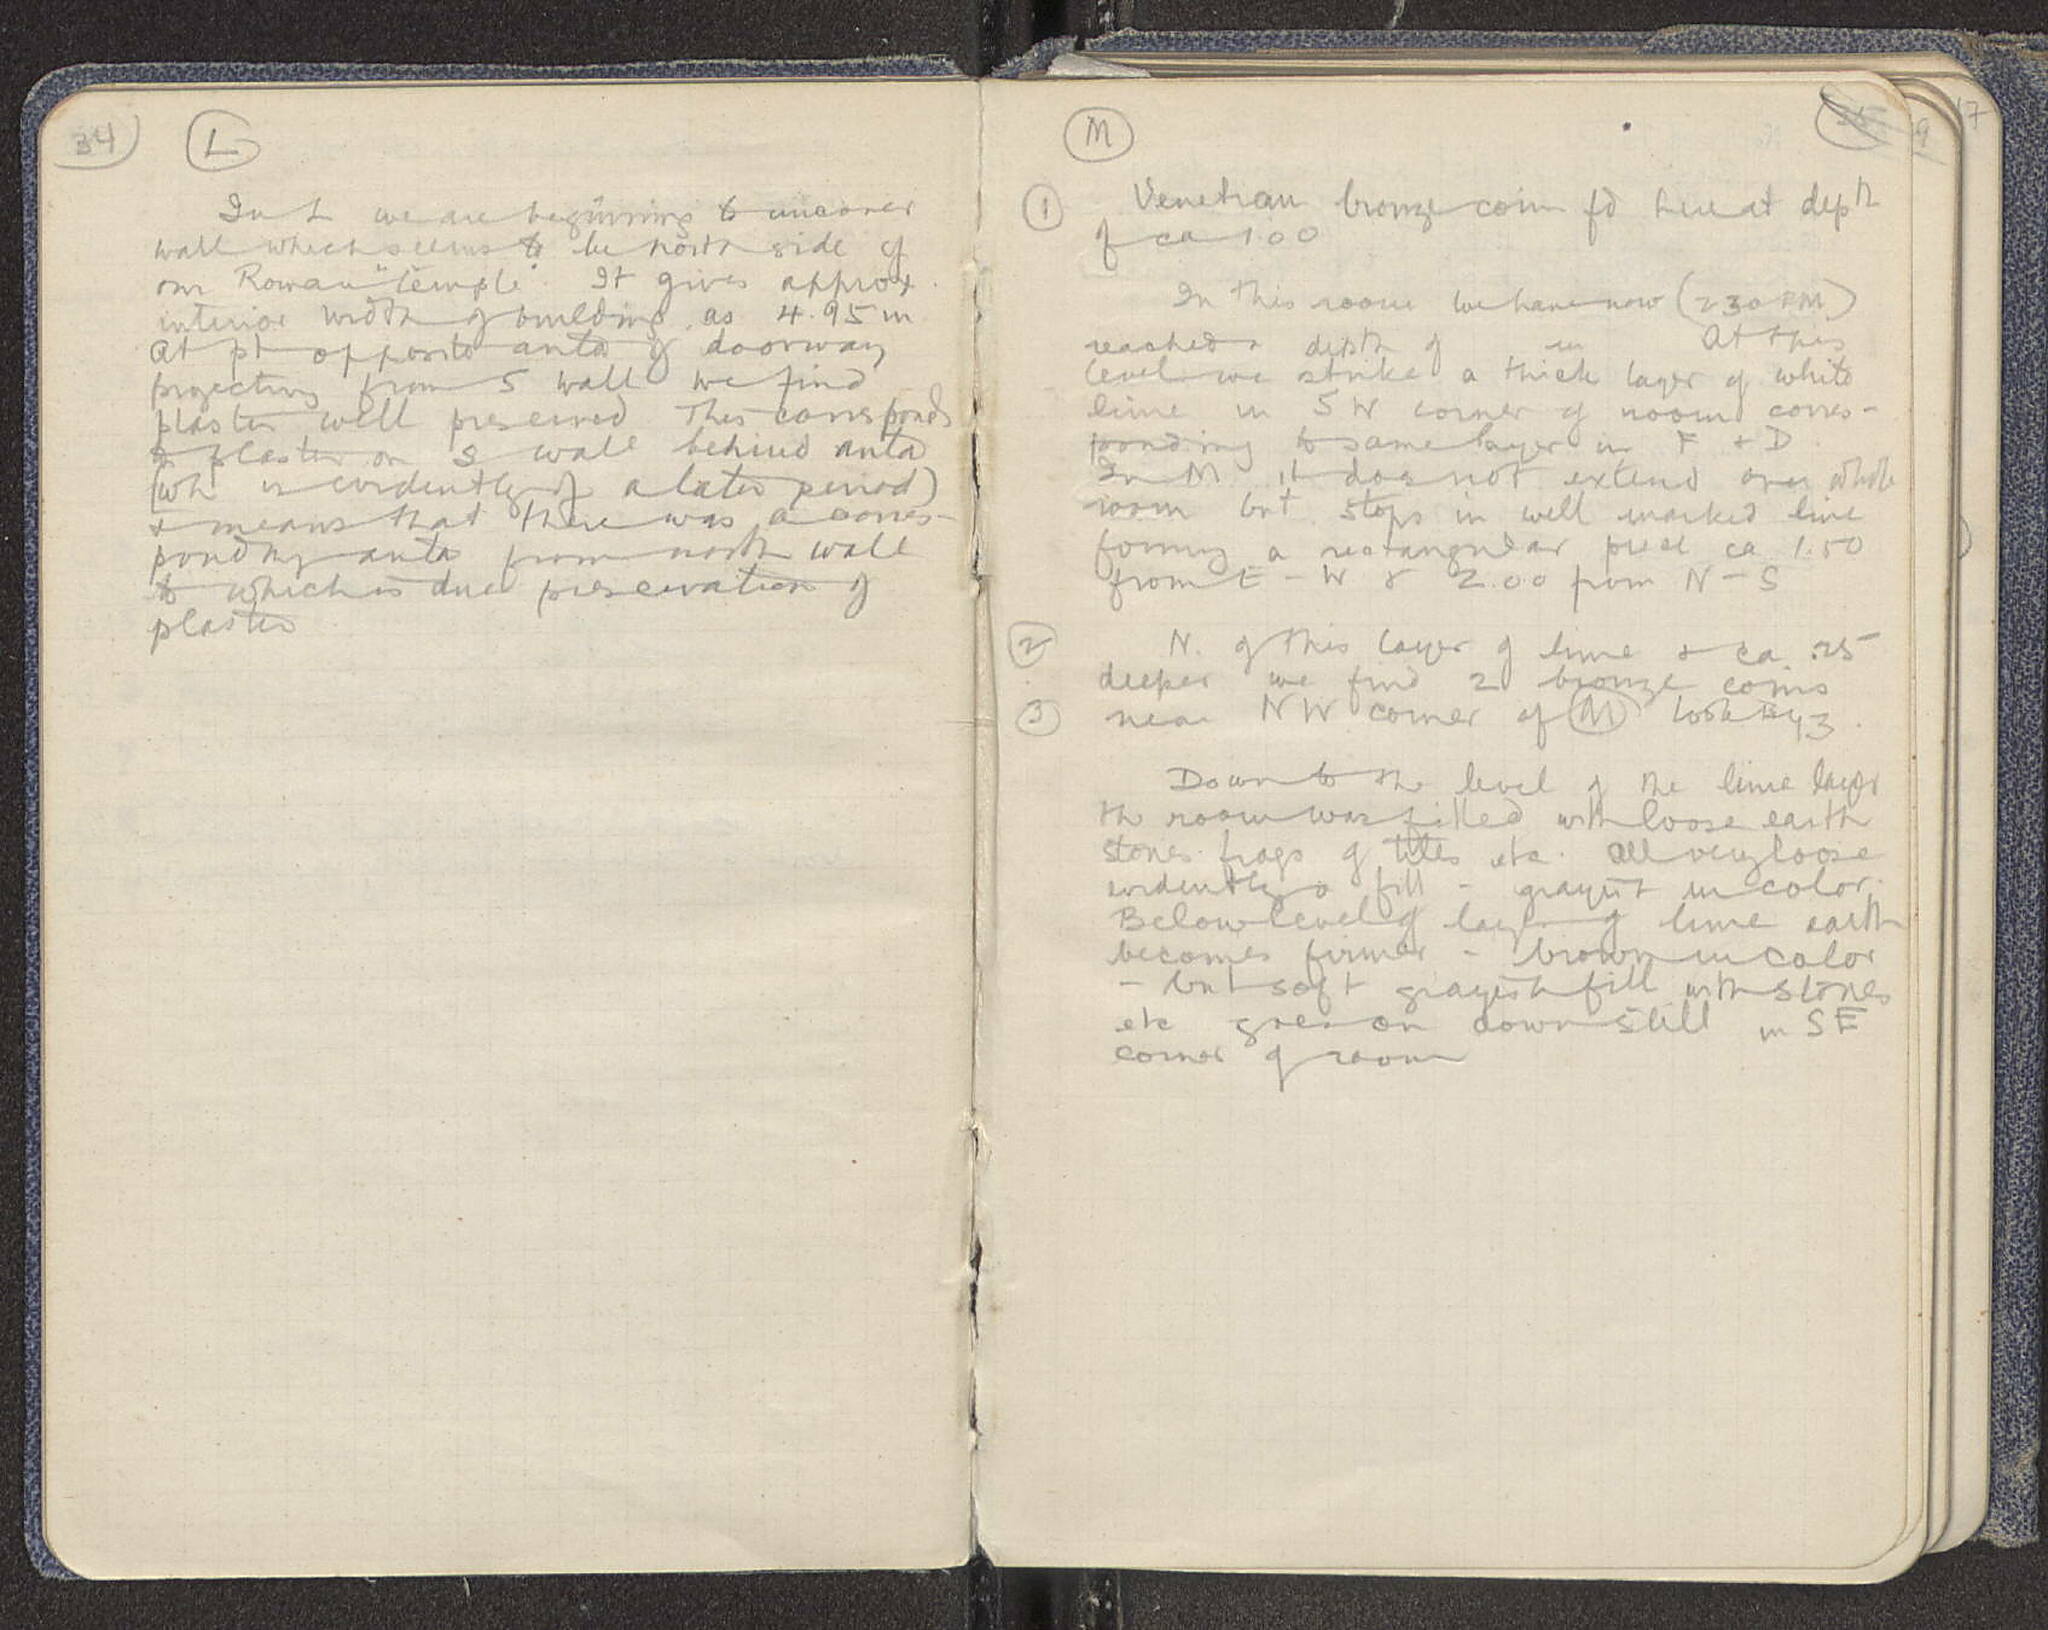 34
L
In L we are beginning to uncover
wall which seems to be north side of
our Roman "temple". It gives approx.
interior width of building as 4.95 m
At pt opposite anta of doorway
projecting from S wall we find
plaster well preserved This corresponds
to plaster on S wall behind anta
(wh is evidently of a later period)
& means that there was a corres-
ponding anta from north wall
to which is due preservation of
plaster
M
1 Venetian bronze coin fd here at depth
of ca 1.00
In this room we have now (2 30 PM)
reached a depth of m At this
level we strike a thick layer of white
lime in SW corner of room corres-
ponding to same layer in F & D.
In M it does not extend over whole
room but stops in well marked line
forming a rectangular piece ca 1.50
from E - W & 2.00 from N - S
2 N. of this layer of lime & ca .25
deeper we find 2 bronze coins
3 near NW corner of M
Down to the level of the lime layer
the room was filled with loose earth
stones frags of tiles etc. All very loose
evidently a fill - grayish in color.
Below level of layer of lime earth
becomes firmer - brown in color
- but soft grayish fill with stones
etc goes on down still in SE
corner of room
9
17